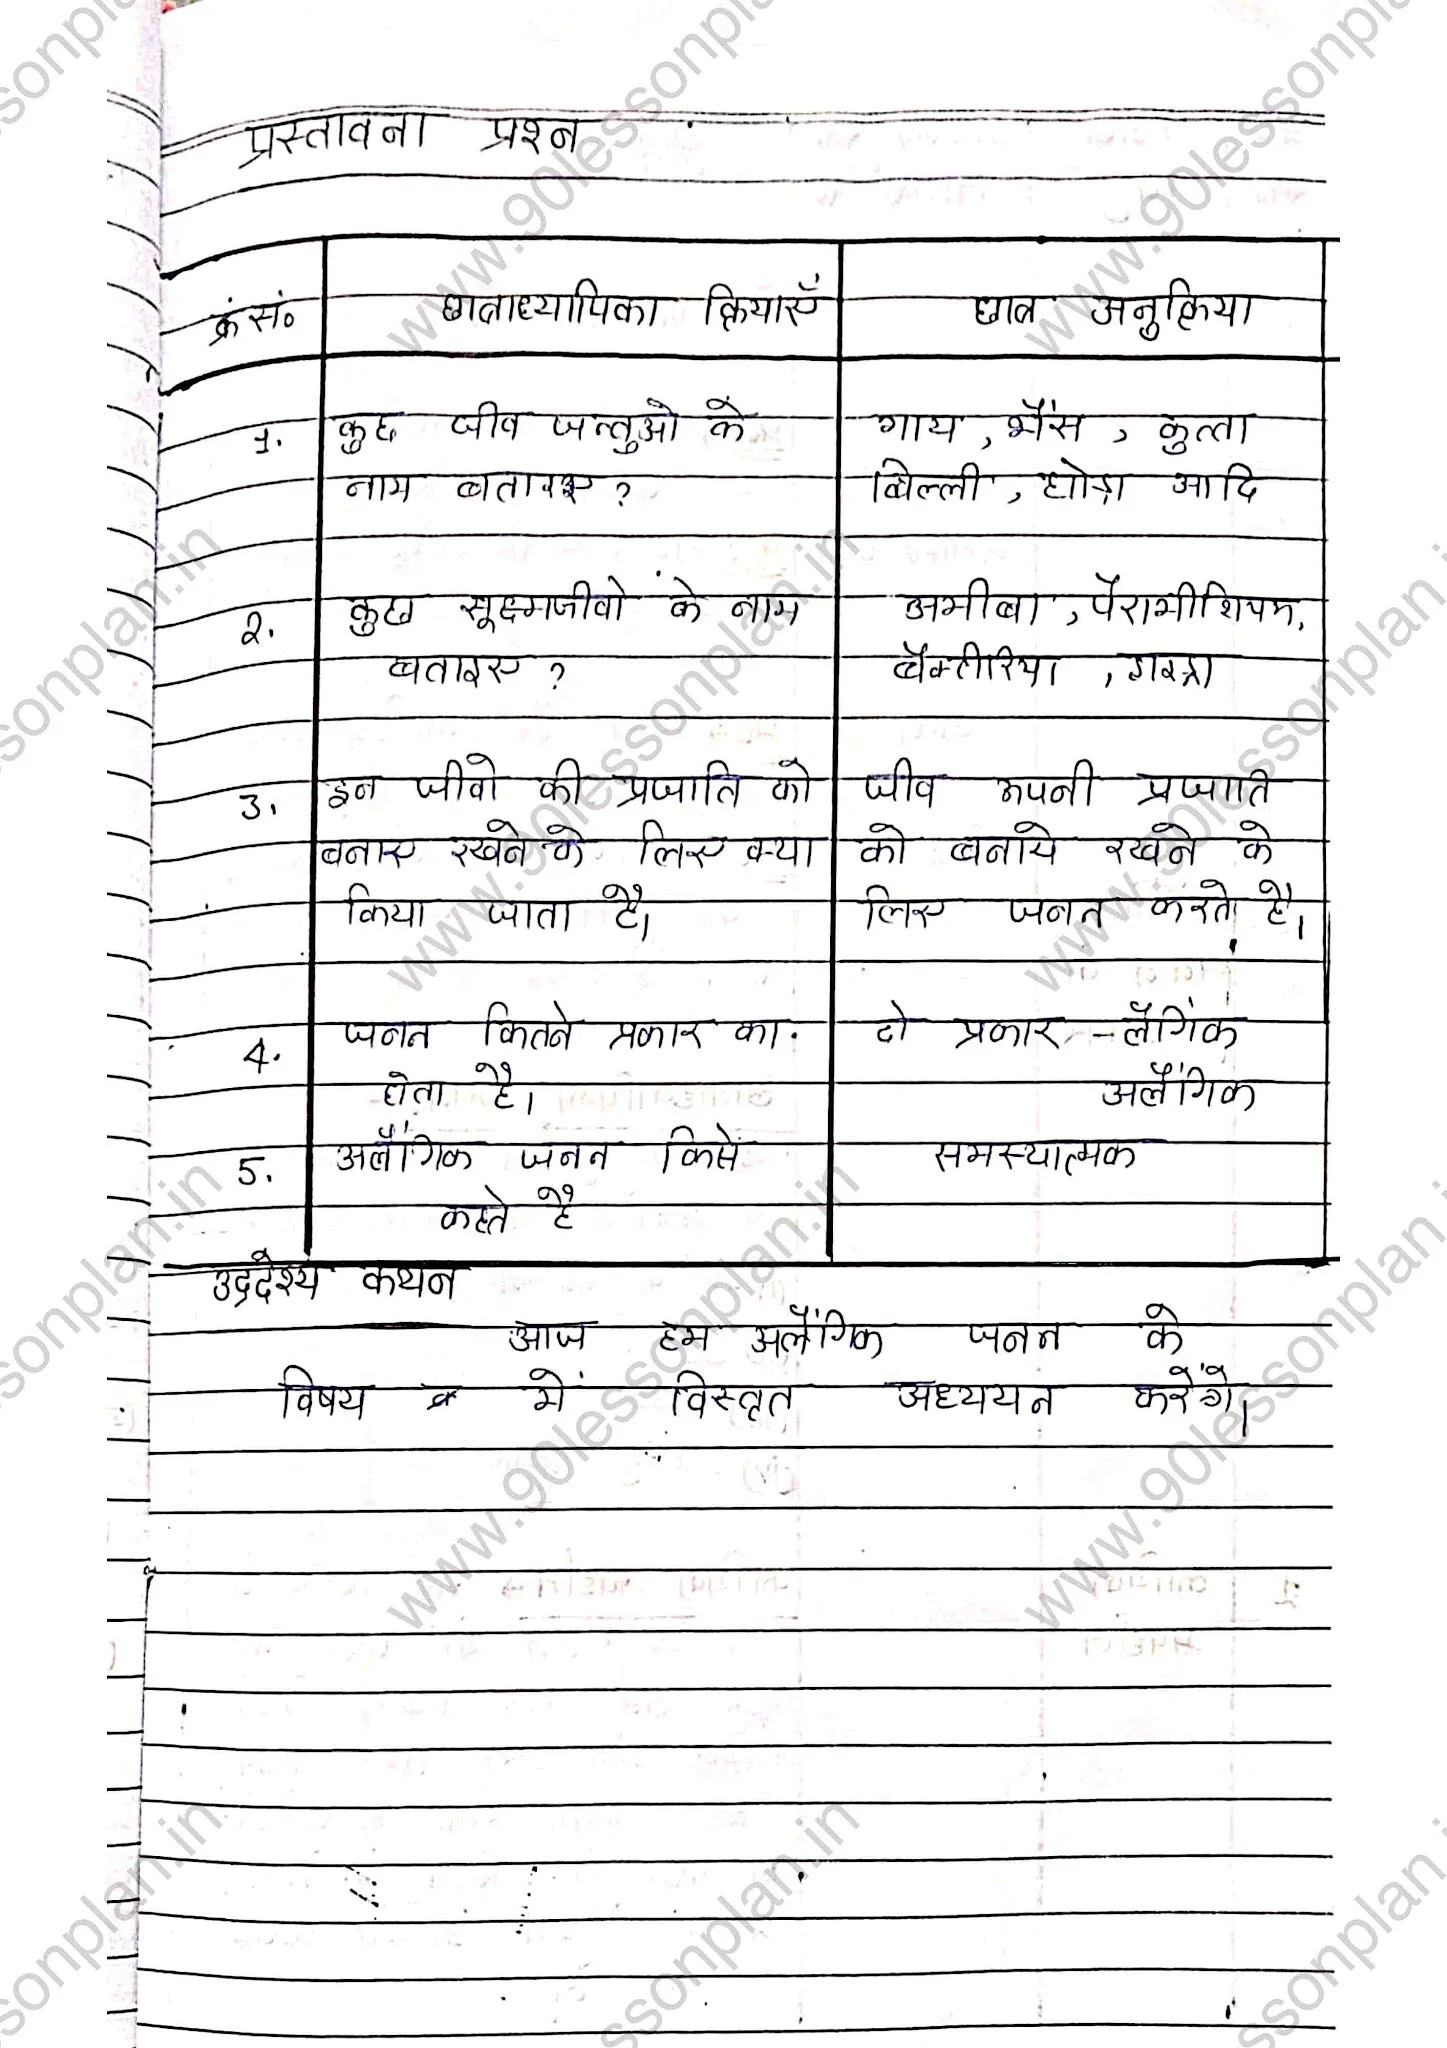 प्रस्तावना प्रश्न
क्रं सं० छात्राध्यापिका क्रियाएँ छात्र अनुक्रिया
1. कुछ जीव जन्तुओ के गाय, भैंस, कुत्ता
नाम बताइए? बिल्ली, घोड़ा आदि
2. कुछ सूक्ष्मजीवो के नाम अमीबा, पैरामीशियम,
बताइए? बैक्टीरिया,
3. इन जीवो की प्रजाति को जीव अपनी प्रजाति
बनाए रखने के लिए क्या को बनाये रखने के
किया जाता है। लिए जनन करते है।
4. जनन कितने प्रकार का दो प्रकार - लैंगिक
होता है। अलैंगिक
5. अलैंगिक जनन किसे समस्यात्मक
कहते है
उद्देश्य कथन
आज हम अलैंगिक जनन के
विषय में विस्तृत अध्ययन करेंगे।
www.90lessonplan.in